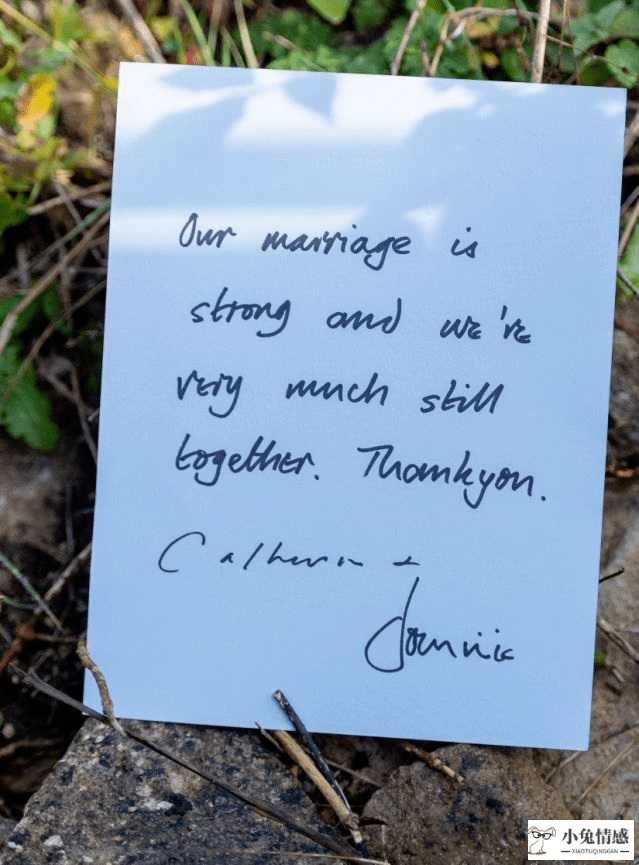 Our marriage is
strong and we've
very much still
together. Thankyou.
Catherine +
Dominic
小兔情感
XIAOTUQINGGAN